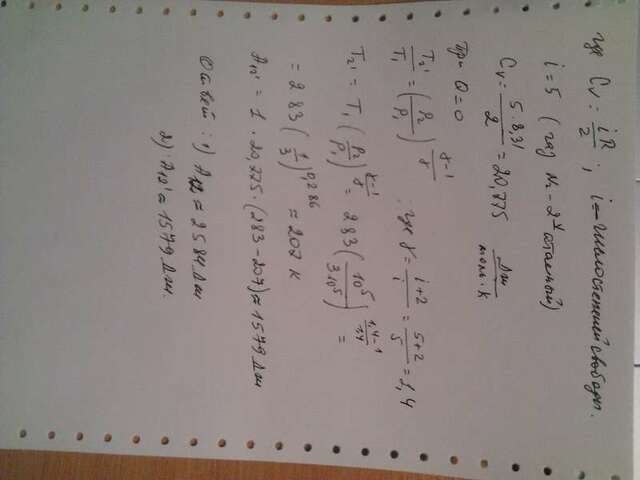 где Cv = iR/2 ; i = число степеней свободы.
i = 5 (газ N₂ - 2х атомный)
Cv = 5·8,31/2 = 20,775 Дж/моль·К
При Q = 0
T₂'/T₁ = (p₂/p₁)^(γ-1/γ) ; где γ = i+2/i = 5+2/5 = 1,4
T₂' = T₁(p₂/p₁)^(γ-1/γ) = 283(10⁵/3·10⁵)^(1,4-1/1,4) =
= 283(1/3)^0,286 ≈ 207 К
A₁₂' = 1·20,775·(283-207) ≈ 1579 Дж
Ответ: 1) A₁₂ ≈ 2584 Дж
2) A₁₂' ≈ 1579 Дж.